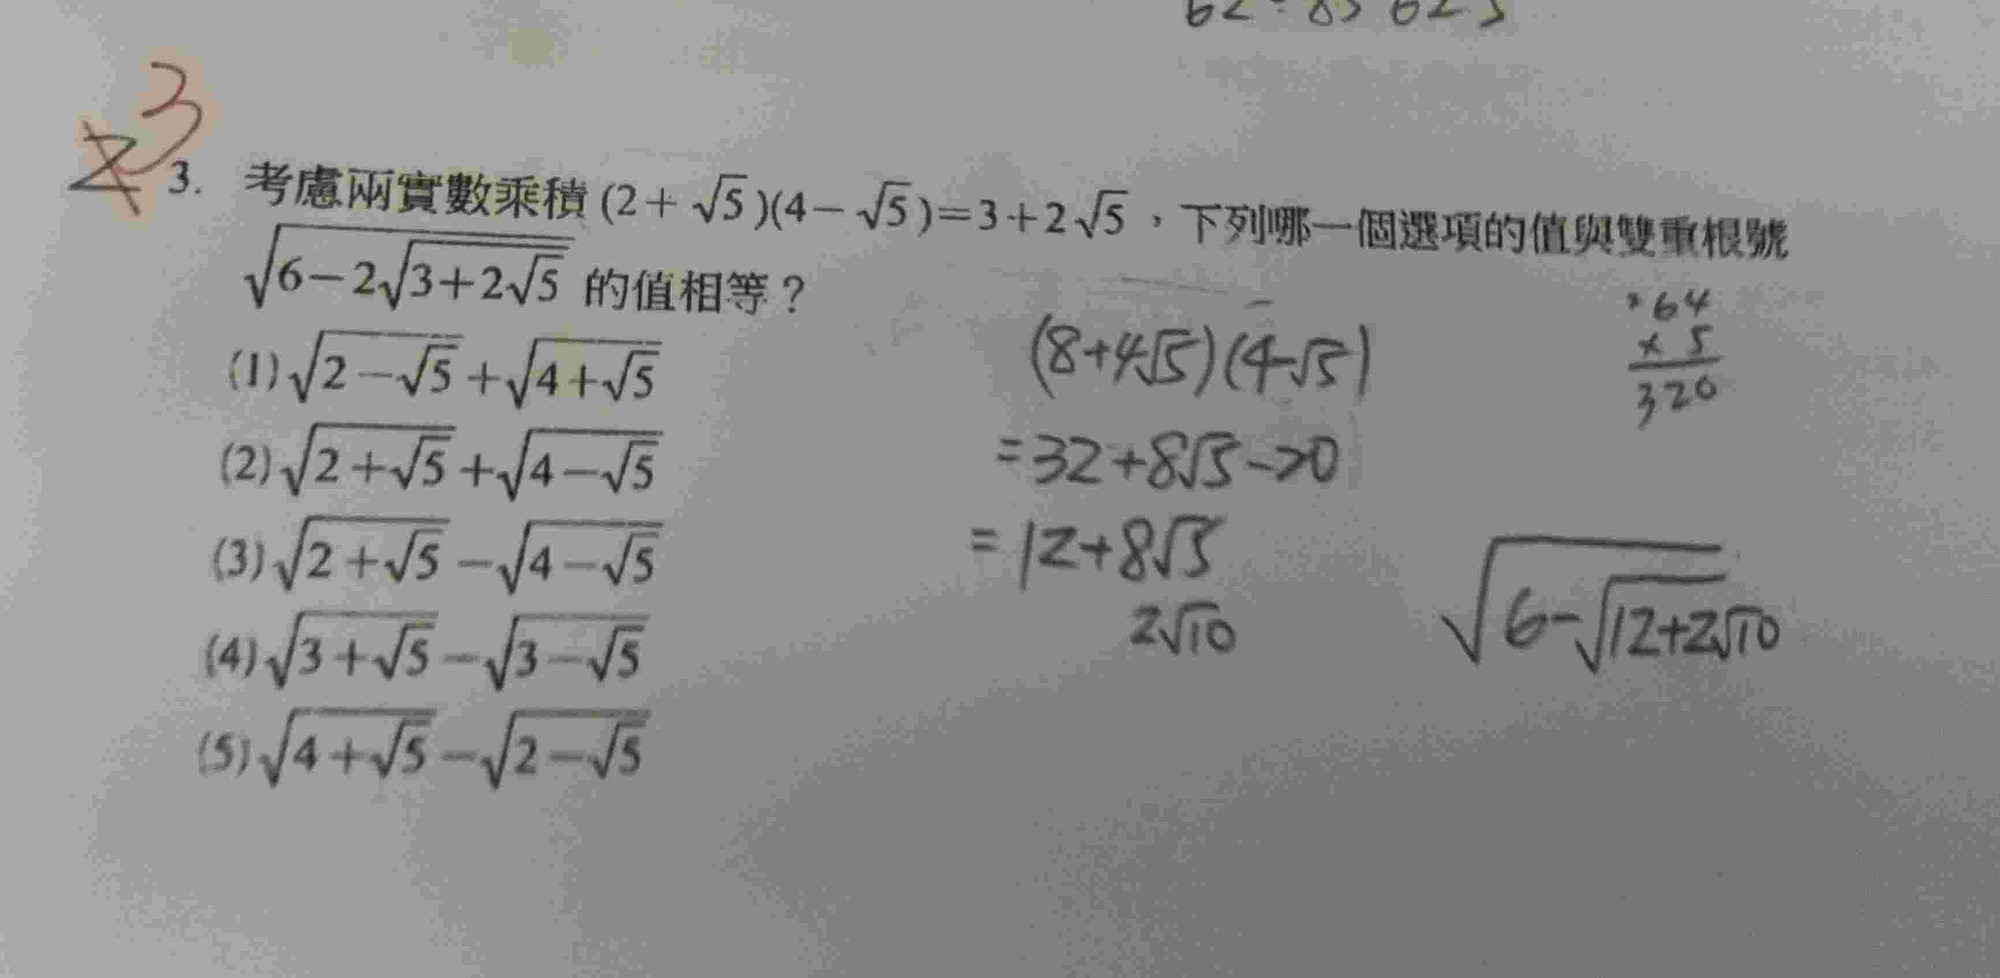 3
3. 考慮兩實數乘積 (2+√5)(4−√5)=3+2√5，下列哪一個選項的值與雙重根號
√(6−2√(3+2√5)) 的值相等？
(1) √(2−√5) + √(4+√5)
(2) √(2+√5) + √(4−√5)
(3) √(2+√5) − √(4−√5)
(4) √(3+√5) − √(3−√5)
(5) √(4+√5) − √(2−√5)
(8+4√5)(4-√5)
=32+8√5-20
=12+8√5
2√10
64
× 5
320
√(6-√(12+2√10))